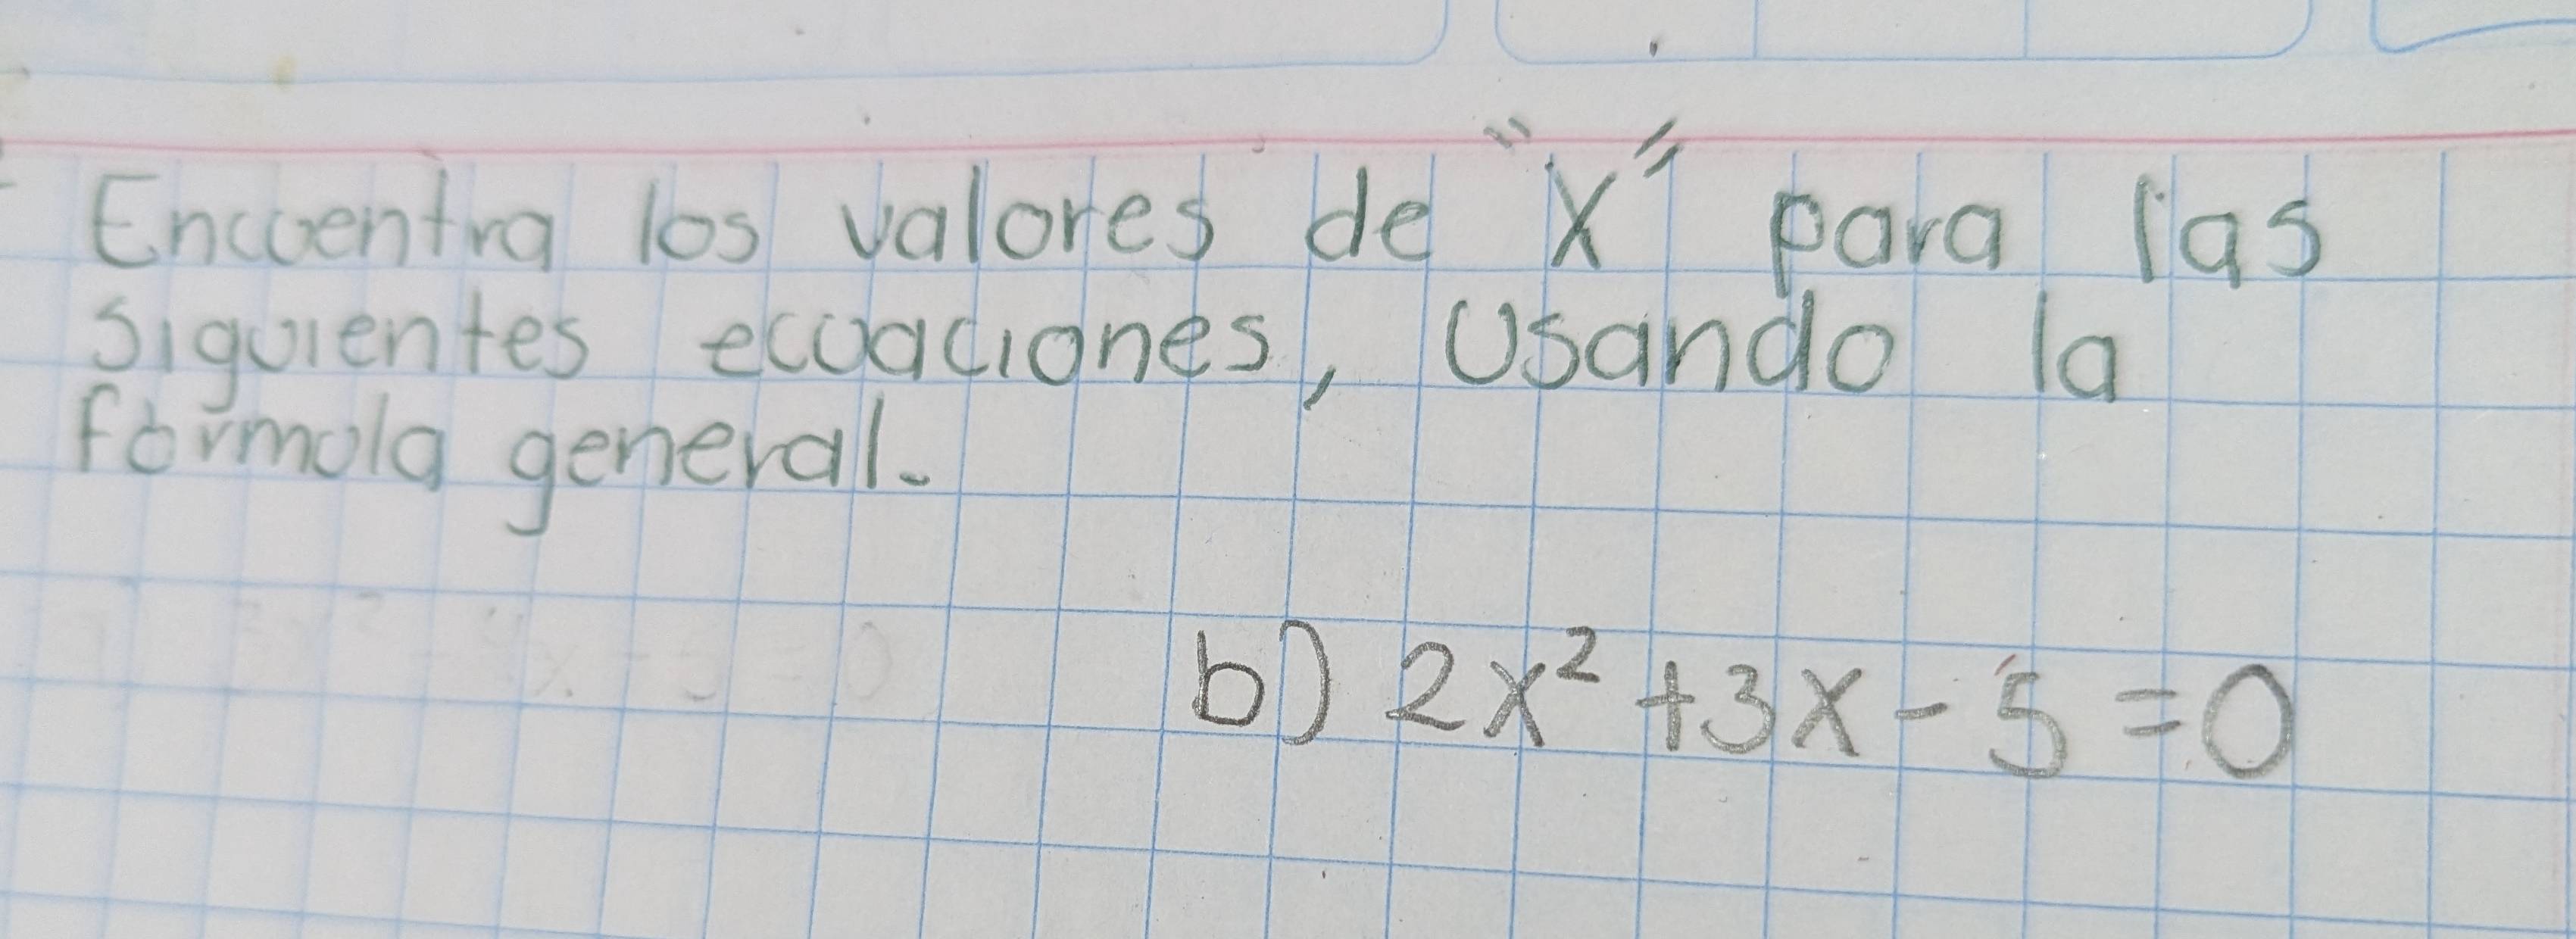 Encuentra los valores de "X" para las
siguientes ecuaciones, usando la
fórmula general.
b) 2x² +3x - 5 = 0